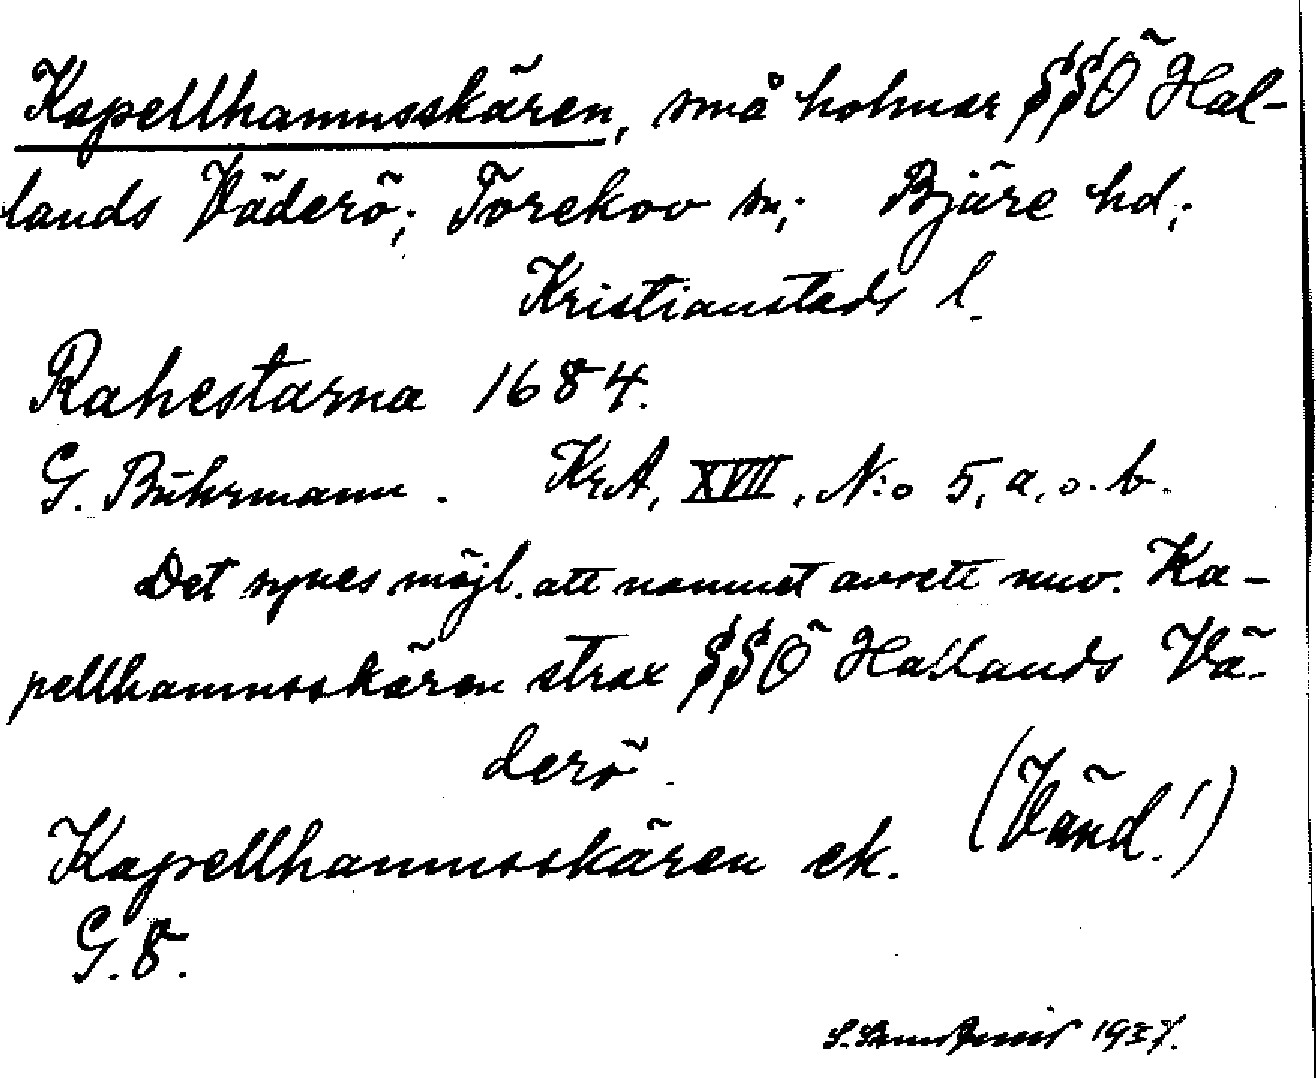 Kapellhamnsskären, små holmar SSÖ Hal-
lands Väderö; Torekov sn; Bjäre hd;
Kristianstads l.
Rahestarna 1684.
G. Buhrmann. KrA, XVII, N:o 5, a, o. b.
Det synes möjl. att namnet avsett nuv. Ka-
pellhamnsskären strax SSÖ Hallands Vä-
derö.
(Vänd!)
Kapellhamnsskären ek.
G. 8.
1937.